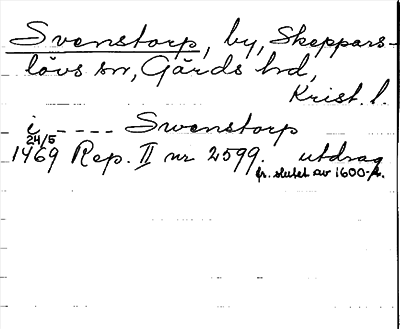 Svenstorp, by, Skeppars-
lövs sn, Gärds hd,
Krist. l.
i - - - - Swenstorp
24/5
1469 Rep. II nr 2599. utdrag
fr. slutet av 1600-t.